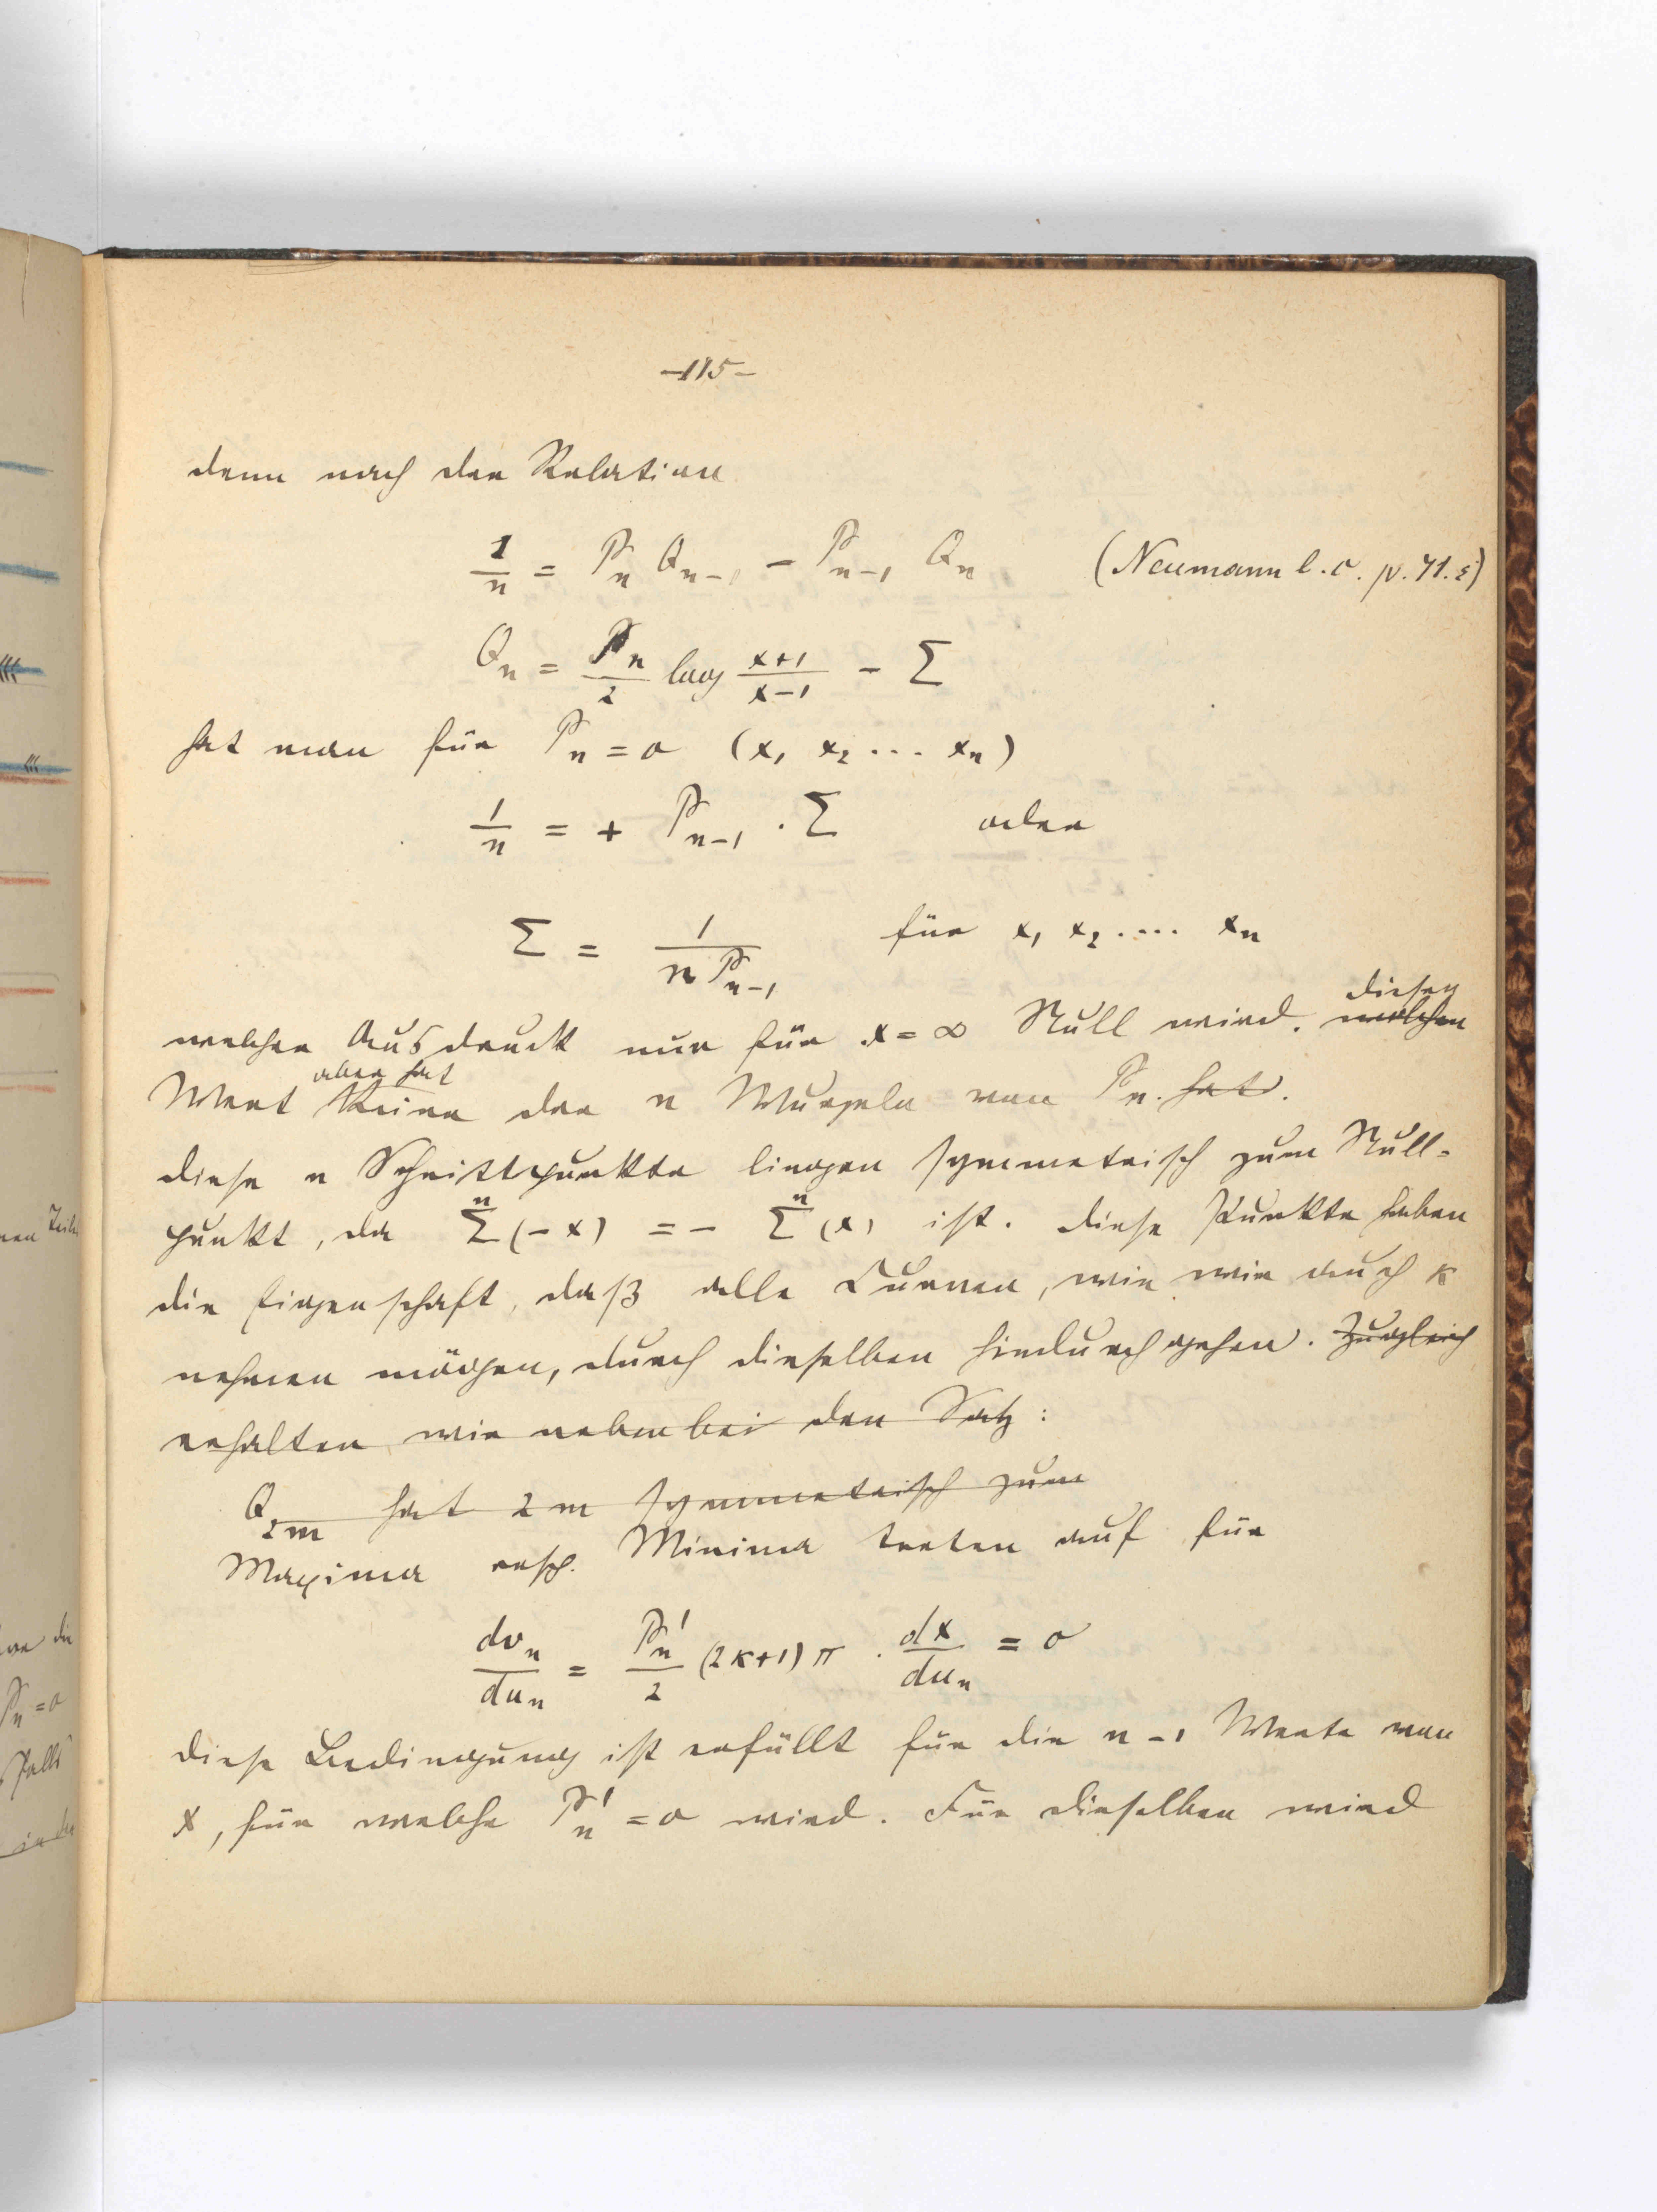 -115-
denn nach der Relation
1/n = P_n Q_{n-1} - P_{n-1} Q_n (Neumann l. c. p. 71. ε)
Q_n = P_n/2 log (x+1)/(x-1) - Σ
hat man für P_n = 0 (x_1 x_2 ... x_n)
1/n = + P_{n-1} . Σ oder
Σ = 1/(n P_{n-1}) für x_1 x_2 .... x_n
diesen
welcher Ausdruck nur für x = ∞ Null wird. welchen
aber hat
Wert keine der n Wurzeln von P_n. hat.
diese n Schnittpunkte liegen symmetrisch zum Null-
punkt, da Σ^n (-x) = - Σ^n (x) ist. diese Punkte haben
die Eigenschaft, daß alle Curven, wie wir auch κ
nehmen mögen, durch dieselben hindurchgehen. Zugleich
erhalten wir nebenbei den Satz:
Q_{2m} hat 2m symmetrisch zum
Maxima resp. Minima treten auf für
dv_n/du_n = P_n'/2 (2κ+1) π . dx/du_n = 0
diese Bedingung ist erfüllt für die n-1 Werte von
x, für welche P_n' = 0 wird. Für dieselben wird